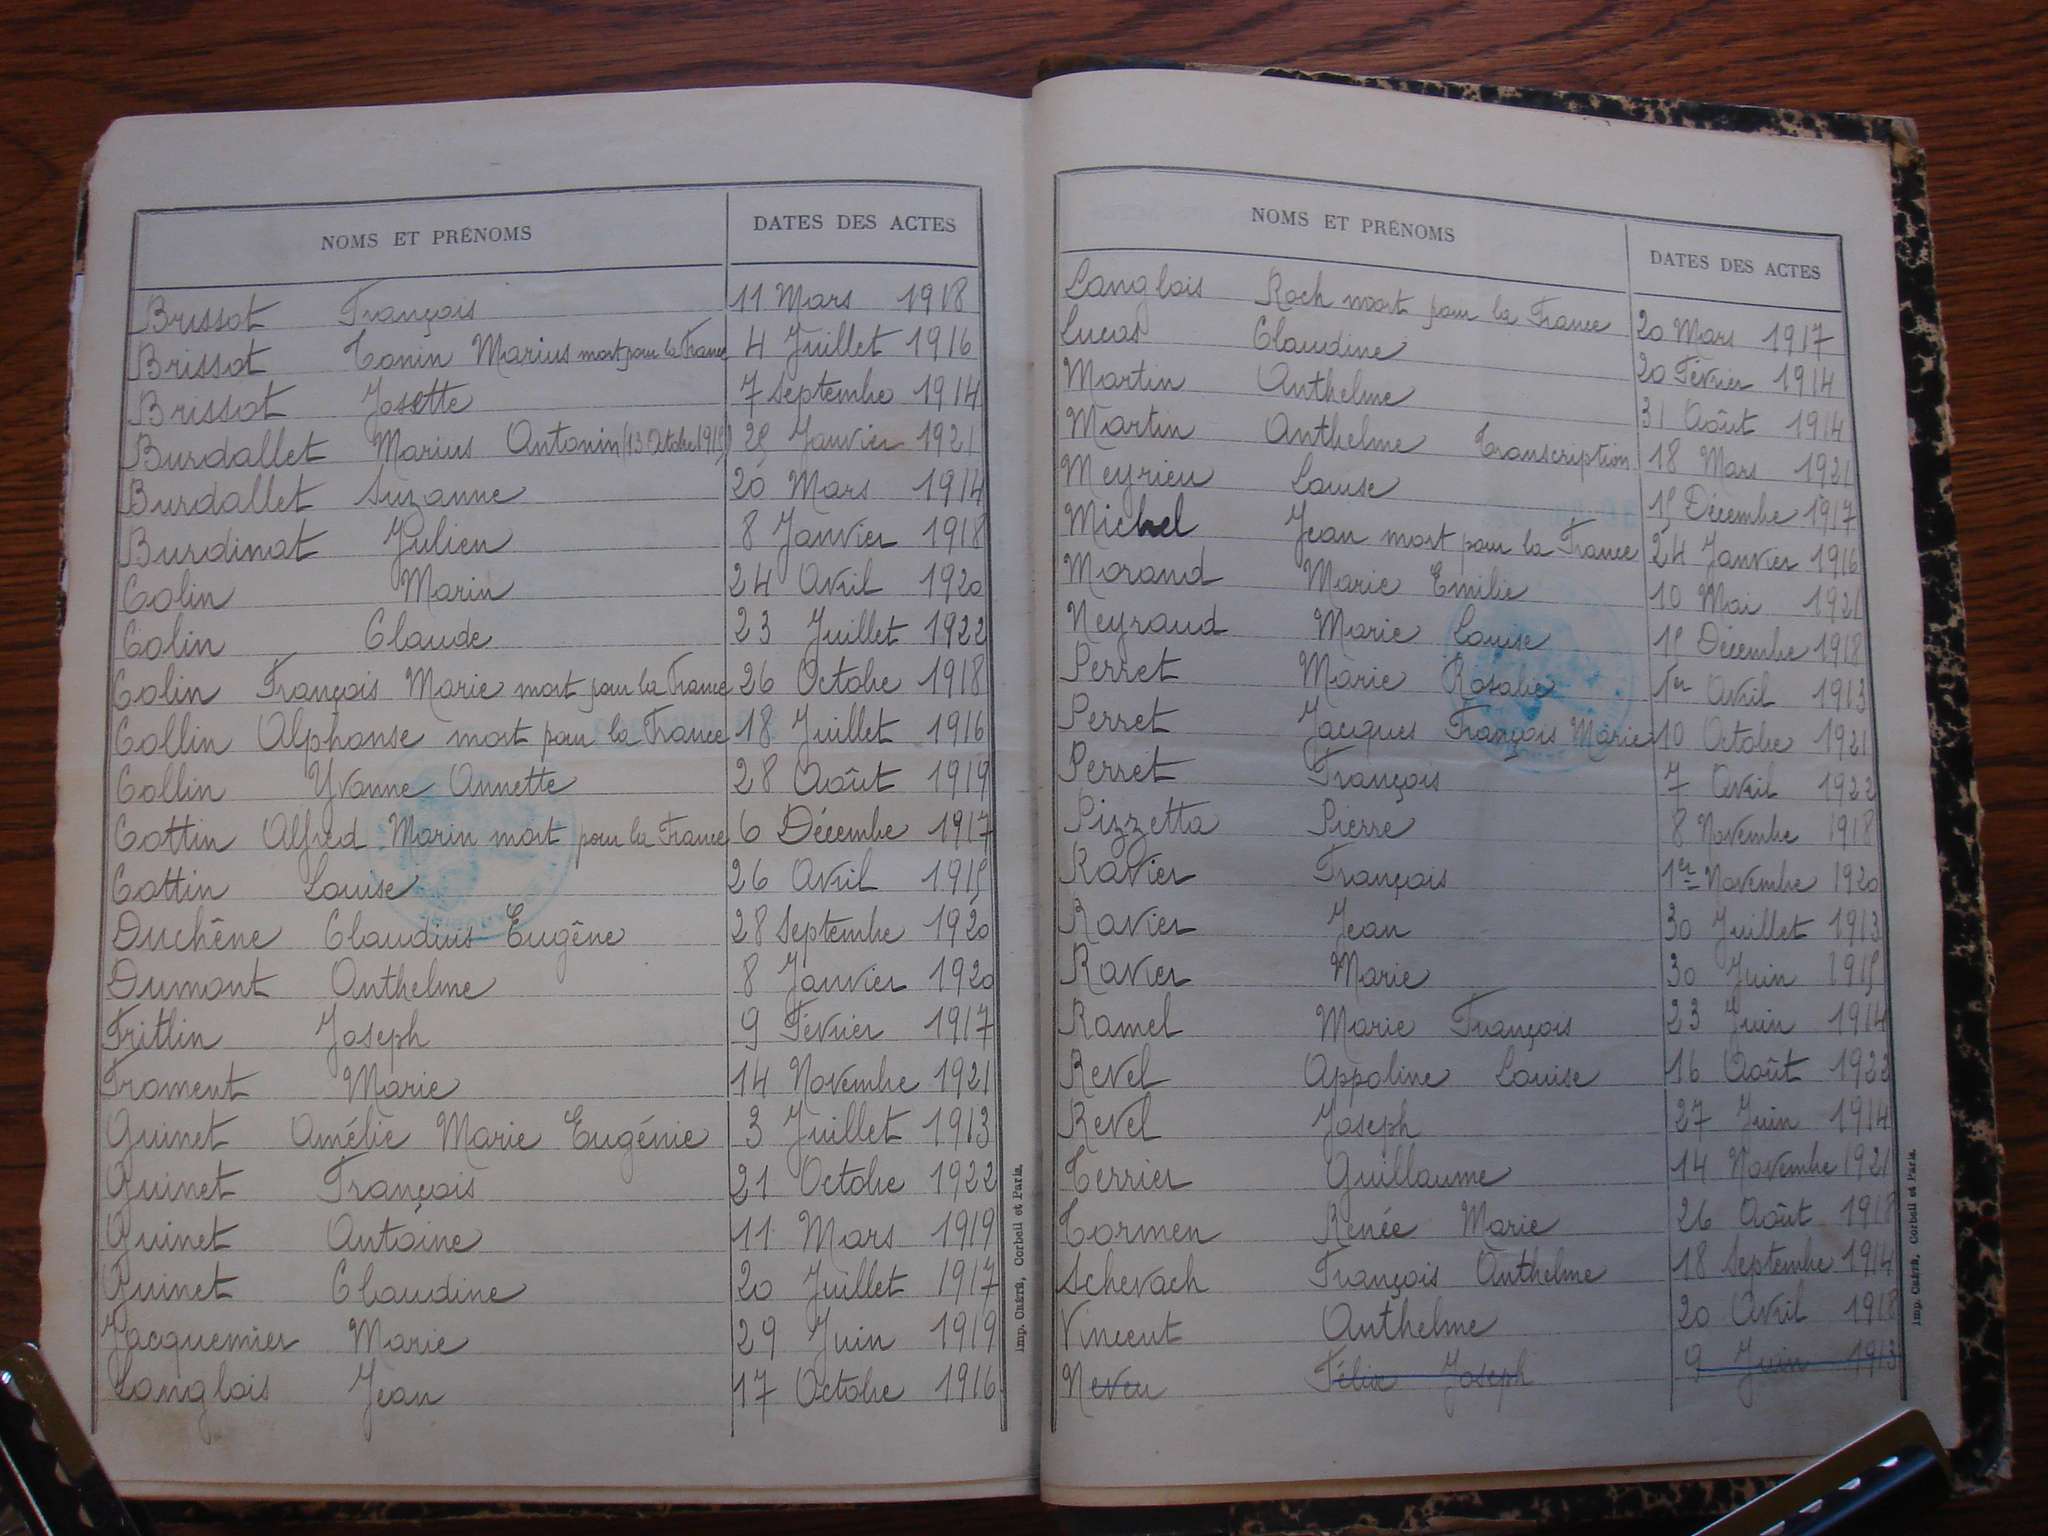 NOMS ET PRÉNOMS DATES DES ACTES
Brissot François 11 Mars 1918
Brissot Tonin Marius mort pour la France 4 Juillet 1916
Brissot Josette 7 Septembre 1914
Burdallet Marius Antonin (13 Octobre 1918) Janvier 1921
Burdallet Suzanne 20 Mars 1914
Burdinat Julien 8 Janvier 1918
Colin Marin 24 Avril 1920
Colin Claude 23 Juillet 1922
Colin François Marie mort pour la France 26 Octobre 1918
Collin Alphonse mort pour la France 18 Juillet 1916
Collin Yvonne Annette 28 Août 1919
Cottin Alfred Marin mort pour la France 6 Décembre 1917
Cottin Louise 26 Avril 1915
Duchêne Claudius Eugêne 28 Septembre 1920
Dumont Anthelme 8 Janvier 1920
Fritlin Joseph 9 Février 1917
Froment Marie 14 Novembre 1921
Guinet Amélie Marie Eugénie 3 Juillet 1913
Guinet François 21 Octobre 1922
Guinet Antoine 11 Mars 1919
Guinet Claudine 20 Juillet 1917
Jacquemier Marie 29 Juin 1919
Langlois Jean 17 Octobre 1916
Imp. Chérü, Corbeil et Paris.
NOMS ET PRÉNOMS DATES DES ACTES
Langlois Roch mort pour la France 20 Mars 1917
Lucas Claudine 20 Février 1914
Martin Anthelme 31 Août 1914
Martin Anthelme Transcription 18 Mars 1921
Meyrieu Louise 15 Décembre 1917
Michel Jean mort pour la France 24 Janvier 1916
Morand Marie Emilie 10 Mai 1921
Neyraud Marie Louise 15 Décembre 1918
Perret Marie Rosalie 1er Avril 1913
Perret Jacques François Marie 10 Octobre 1921
Perret François 7 Avril 1922
Pizzetta Pierre 8 Novembre 1918
Ravier François 1er Novembre 1920
Ravier Jean 30 Juillet 1913
Ravier Marie 30 Juin 1915
Ramel Marie François 23 Juin 1914
Revel Appoline Louise 16 Août 1922
Revel Joseph 27 Juin 1914
Terrier Guillaume 14 Novembre 1921
Tormen Renée Marie 26 Août 1918
Schevach François Anthelme 18 Septembre 1914
Vincent Anthelme 20 Avril 1918
Neveu Félix Joseph 9 Juin 1913
Corbeil et Paris.